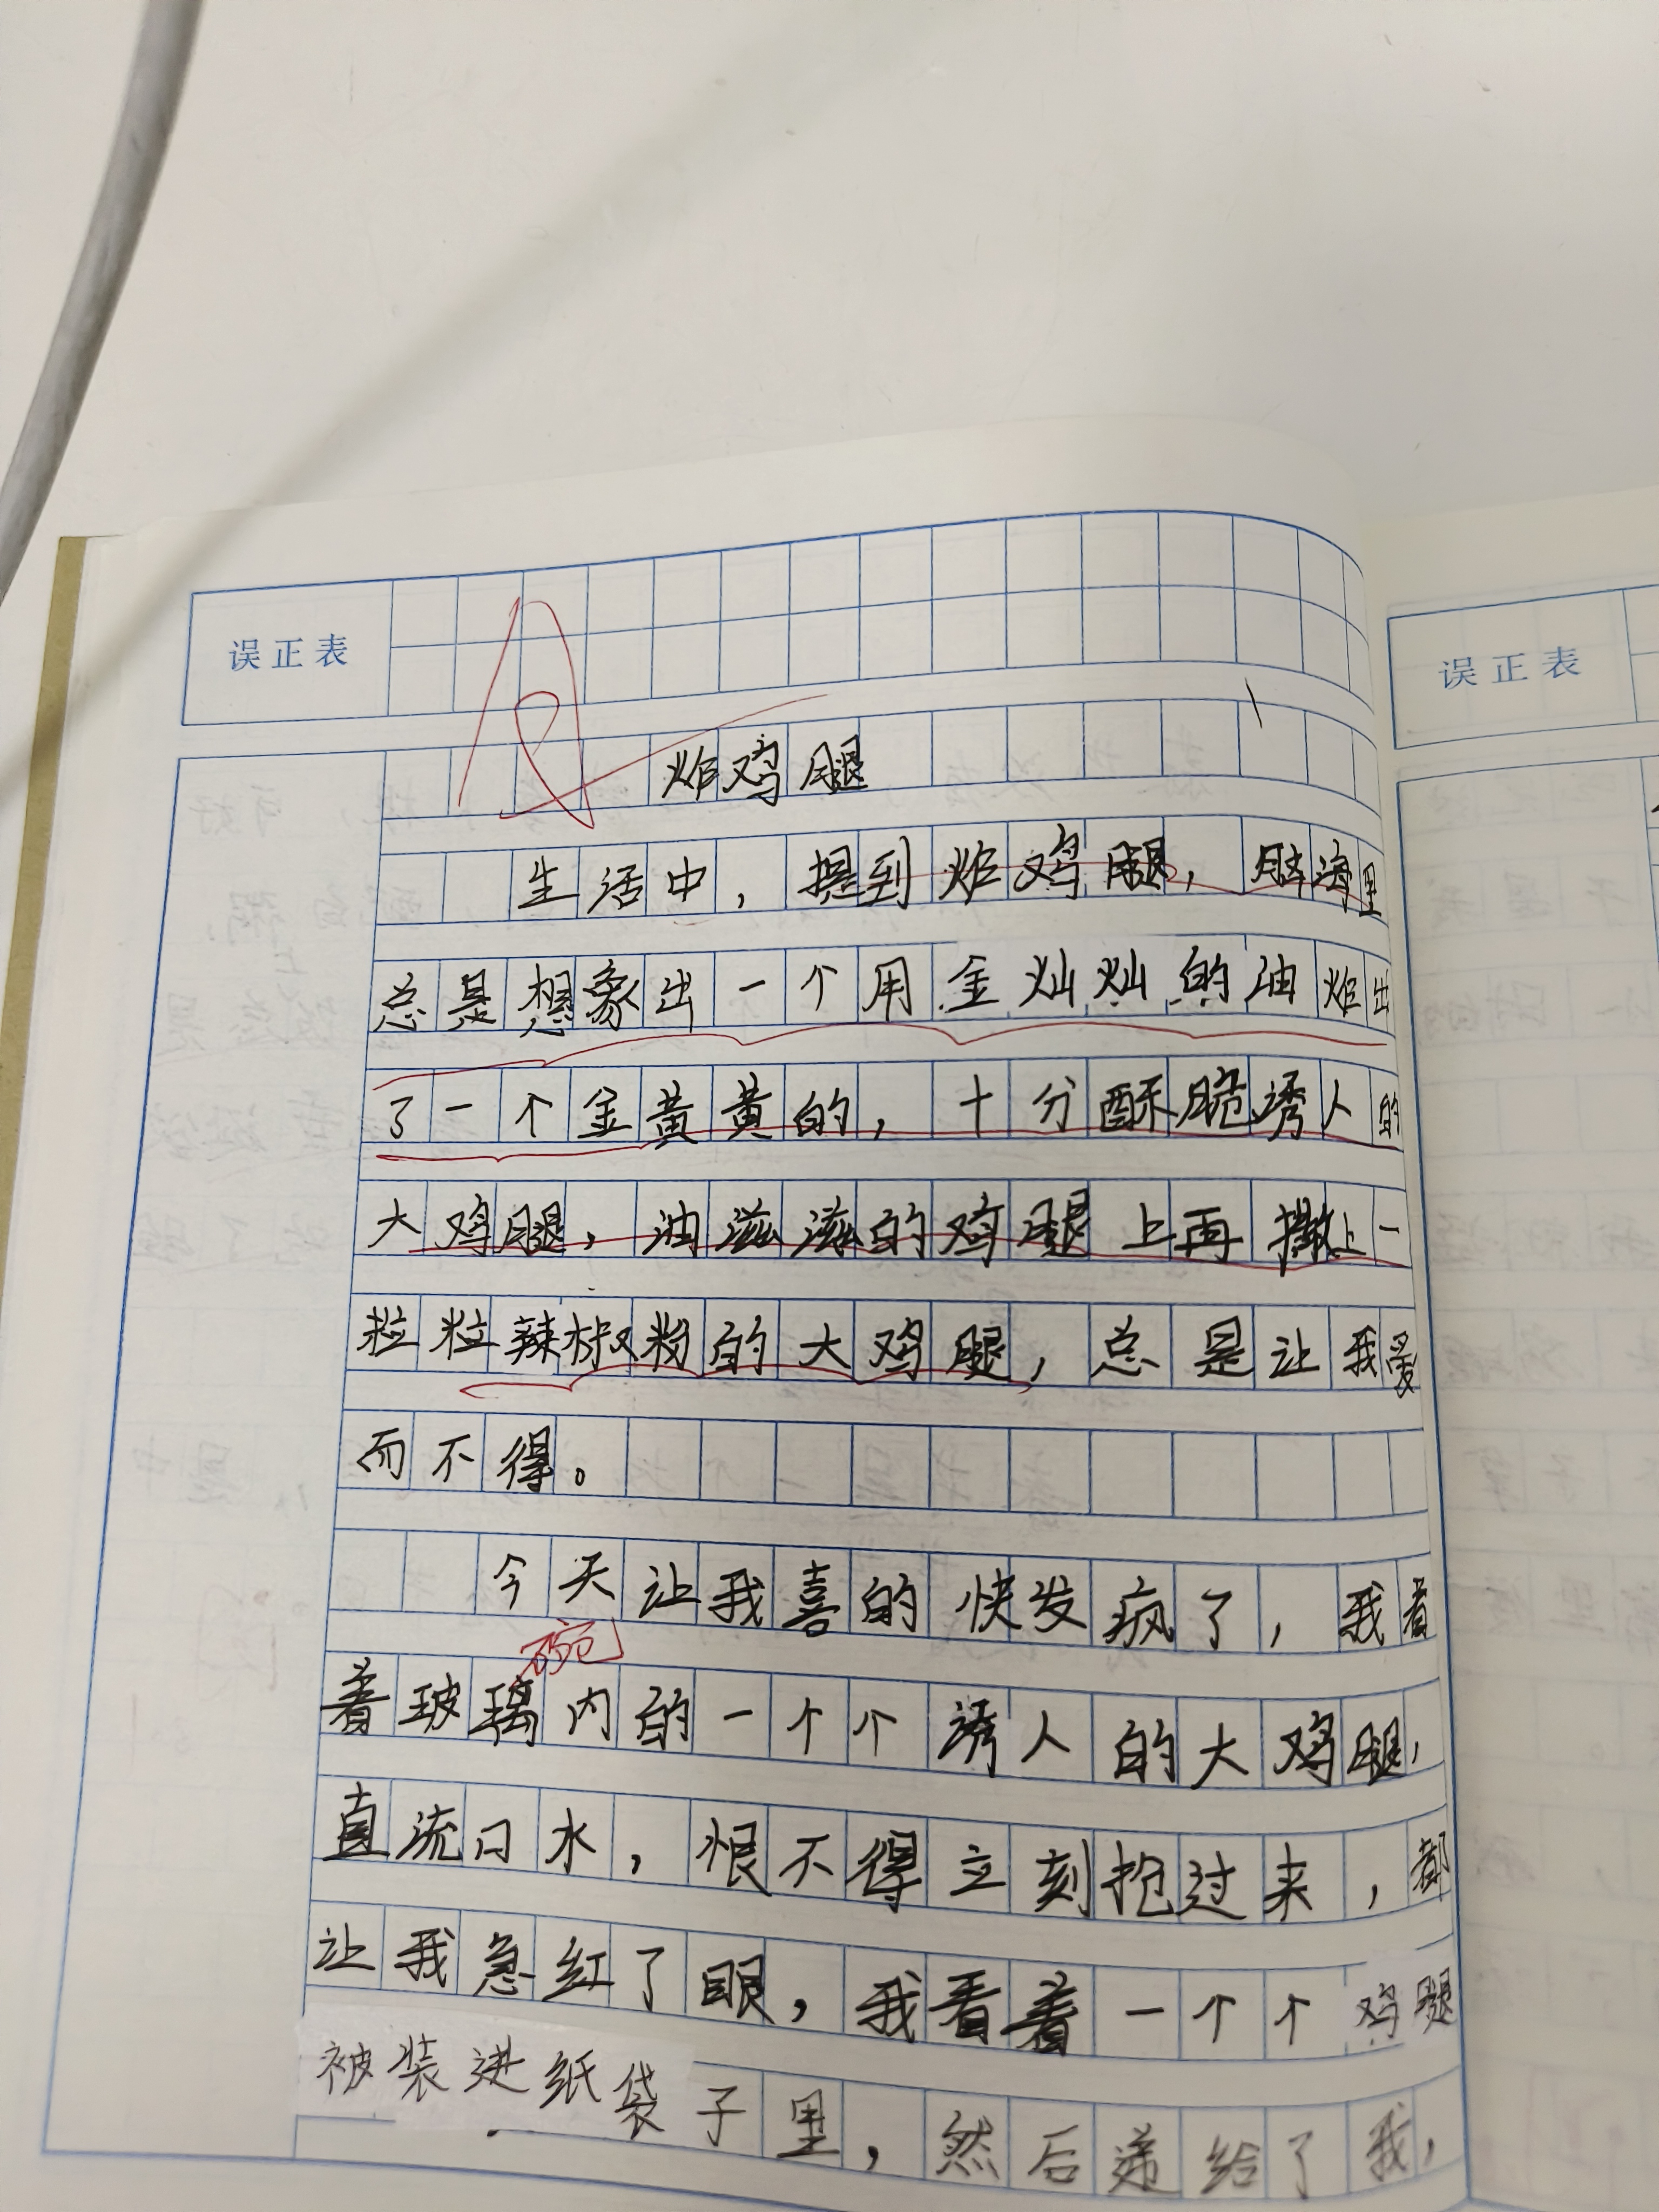 误正表
误正表
A
炸鸡腿
生活中，提到炸鸡腿，脑海里
总是想象出一个用金灿灿的油炸出
了一个金黄黄的，十分酥脆诱人的
大鸡腿，油滋滋的鸡腿上再撒上一
粒粒辣椒粉的大鸡腿，总是让我爱
而不得。
今天让我喜的快发疯了，我看
碗
着玻璃内的一个个诱人的大鸡腿，
直流口水，恨不得立刻抢过来，都
让我急红了眼，我看着一个个鸡腿
被装进纸袋子里，然后递给了我，